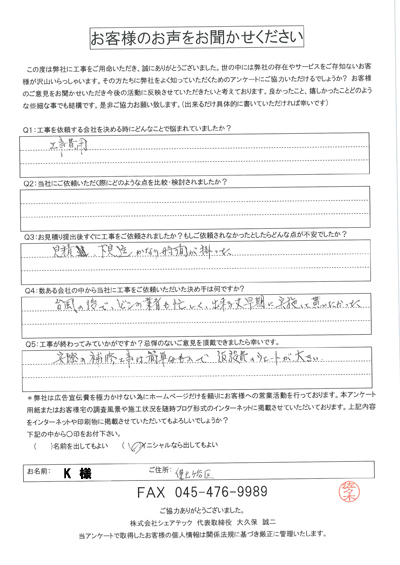 お客様のお声をお聞かせください
この度は弊社に工事をご用命いただき、誠にありがとうございました。世の中には弊社の存在やサービスをご存知ないお客
様が沢山いらっしゃいます。その方たちに弊社をよく知っていただくためのアンケートにご協力いただけるでしょうか？ お客様
のご意見をお聞かせいただき今後の活動に反映させていただきたいと考えております。良かったこと、嬉しかったことどのよう
な些細な事でも結構です。是非ご協力お願い致します。（出来るだけ具体的に書いていただければ幸いです）
Q1：工事を依頼する会社を決める時にどんなことで悩まれていましたか？
工事費用
Q2：当社にご依頼いただく際にどのような点を比較・検討されましたか？
Q3：お見積り提出後すぐに工事をご依頼されましたか？もしご依頼されなかったとしたらどんな点が不安でしたか？
見積 かなり時間が掛った
Q4：数ある会社の中から当社に工事をご依頼いただいた決め手は何ですか？
台風の後で、どこの業者も忙しく、出来るだけ早期に実施して貰いたかった
Q5：工事が終わってみていかがですか？忌憚のないご意見を頂戴できましたら幸いです。
実際の補修工事は簡単なもので 仮設費のウェートが大きい
＊弊社は広告宣伝費を極力かけない為にホームページだけを頼りにお客様への営業活動を行っております。本アンケート
用紙またはお客様宅の調査風景や施工状況を随時ブログ形式のインターネットに掲載させていただいております。上記内容
をインターネットや印刷物に掲載させていただいてもよろしいでしょうか？
下記の中から〇印をお付下さい。
（　）名前を出してもよい （〇）イニシャルなら出してもよい
お名前： K 様 ご住所： 保土ケ谷区
FAX 045-476-9989
ご協力ありがとうございました。
株式会社シェアテック 代表取締役 大久保 誠二
当アンケートで取得したお客様の個人情報は関係法規に基づき厳正に管理いたします。